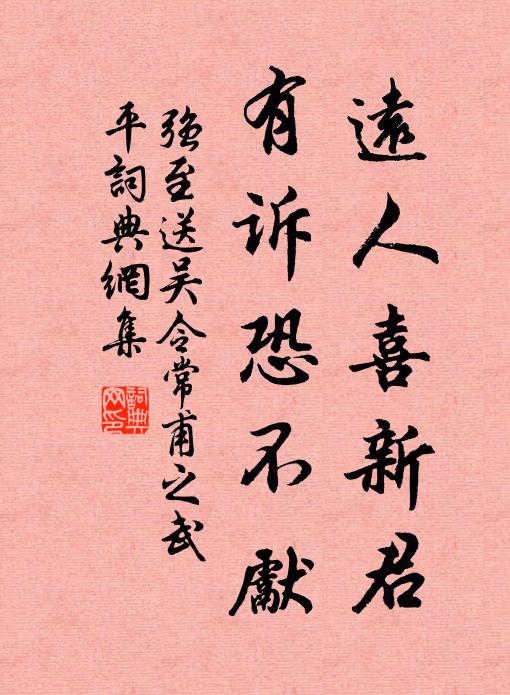 遠人喜新君
有诉恐不獻
强至送吴令常甫之武
平詞典網集
詞典
网印